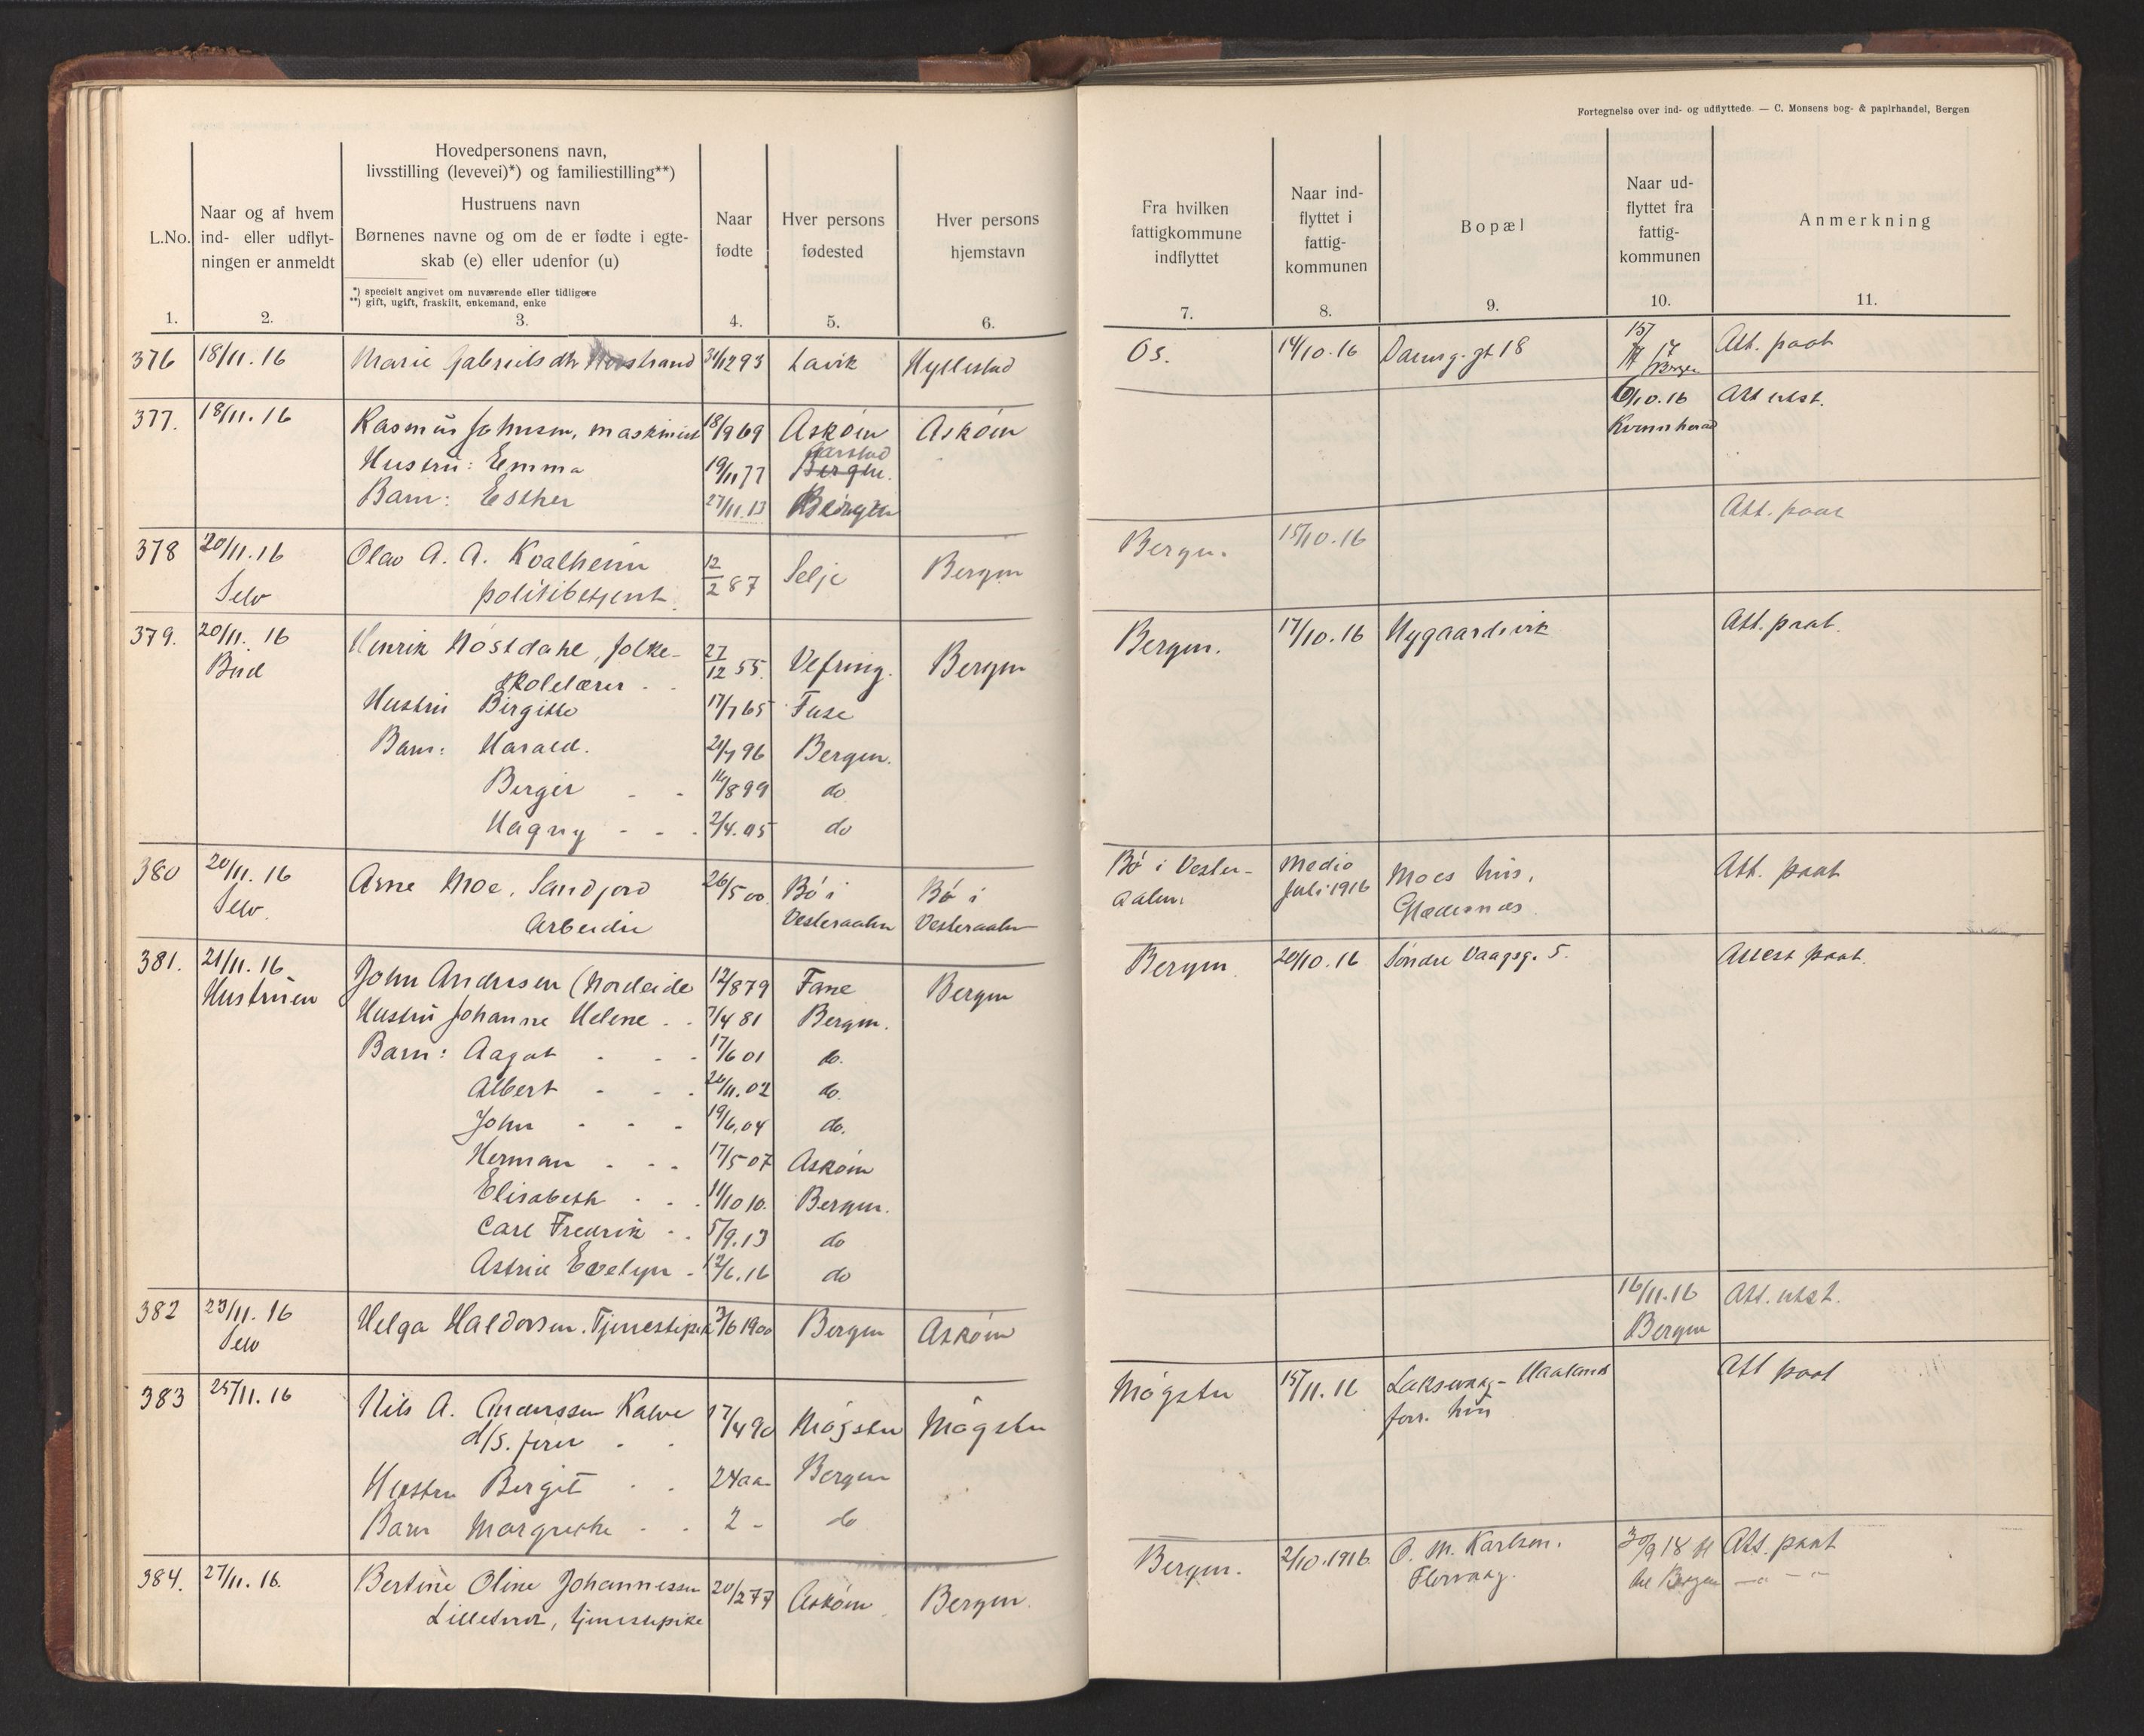 Fortegnelse over ind- og udflyttede. — C. Monsens bog- & papirhandel, Bergen
L.No.
Naar og af hvem
ind- eller udflyt-
ningen er anmeldt
Hovedpersonens navn,
livsstilling (levevei)*) og familiestilling**)
Hustruens navn
Børnenes navne og om de er fødte i egte-
skab (e) eller udenfor (u)
*) specielt angivet om nuværende eller tidligere
**) gift, ugift, fraskilt, enkemand, enke
Naar
fødte
Hver persons
fødested
Hver persons
hjemstavn
Fra hvilken
fattigkommune
indflyttet
Naar ind-
flyttet i
fattig-
kommunen
Bopæl
Naar ud-
flyttet fra
fattig-
kommunen
Anmerkning
1. 2. 3. 4. 5. 6. 7. 8. 9. 10. 11.
376 18/11. 16 Marie Gabrielsdtr 31/12 93 Lavik Hyllestad Os. 14/10. 16 18 Att. paat
377. 18/11. 16 Rasmus Johnsen, maskinist 18/9 69 Askøin Askøin 6/10. 16 Att utst.
Kvinnherad
Hustru: Emma 19/11 77 Bergen.
Barn: Esther 27/11. 13 Bergen
378 20/11. 16 Olav A. A. Kvalheim 12/2 87 Selje Bergen Bergen. 15/10. 16 Att. paat
Selv politibetjent.
379. 20/11. 16 Henrik Nøstdahl, folke- 27/12 55. Vefring. Bergen Bergen. 17/10. 16 Nygaardsvik Att. paat.
Bud skolelærer
Hustru Birgitte 17/7 65 Fuse
Barn: Harald. 21/7 96 Bergen.
Birger 14/8 99 do
Magny 2/4. 05 do
380 20/11. 16 Arne Moe, Sandjord 26/5 00. Bø i Bø i Bø i Vester- Medio Moes hus, Att. paat
Selv. Arbeider Vesteraalen Vesteraalen aalen. Juli 1916 Glædesnæs
381. 21/11. 16 John Andersen (Nordeide 12/8 79 Fane Bergen Bergen. 20/10. 16 Søndre Vaagsg. 5. Attest paat.
Hustruen Hustru Johanne Helene 7/4 81 Bergen.
Barn: Aagot 17/6 01 do.
Albert 20/11. 02 do.
John 19/6. 04 do.
Herman 17/5 07 Askøin
Elisabeth 11/10 10. Bergen.
Carl Fredrik 5/9. 13 do
Astrid Evelyn 12/6. 16 do
382 23/11. 16 Helga Haldorsen. Tjenestepike 3/6 1900 Bergen Askøin 16/11. 16 Att. utst.
Selv Bergen
383 25/11. 16 Nils A. Anderssen Kalve 17/4 90 Møgster Møgster Møgster 15/11. 16 Laksevaag - Haaland Att paat
d/s. fører forr. hus
Hustru Bergit 24 aar Bergen
Barn Margrethe 2 - do
384. 27/11. 16. Bertine Oline Johannessen 20/2 77 Askøin Bergen. Bergen. 2/10. 1916. O. M. Karlsen. 30/9 18 Att. paat
Lilletvedt, tjenestepike Florvaag. til Bergen